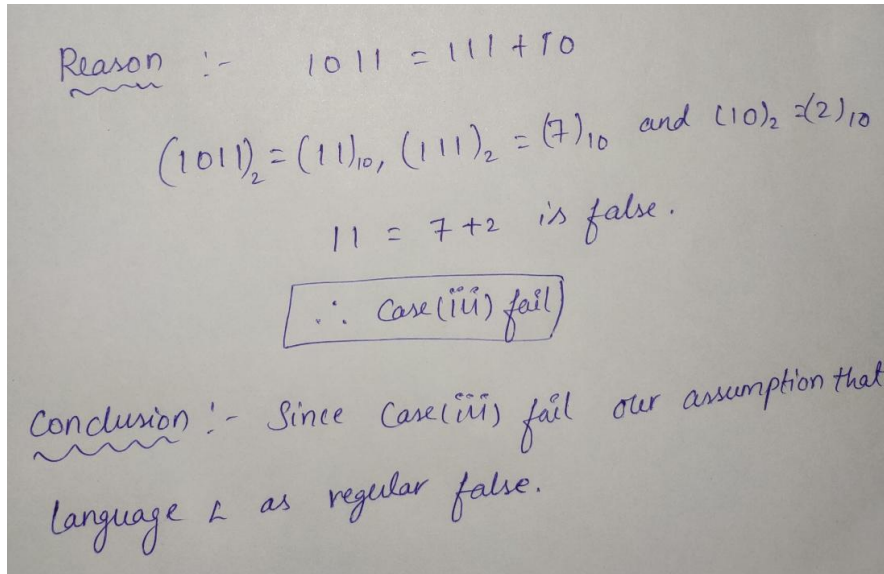 Reason :- 1011 = 111 + 10
(1011)₂ = (11)₁₀, (111)₂ = (7)₁₀ and (10)₂ = (2)₁₀
11 = 7 + 2 is false.
∴ Case (iii) fail
Conclusion :- Since Case (iii) fail our assumption that
language L as regular false.